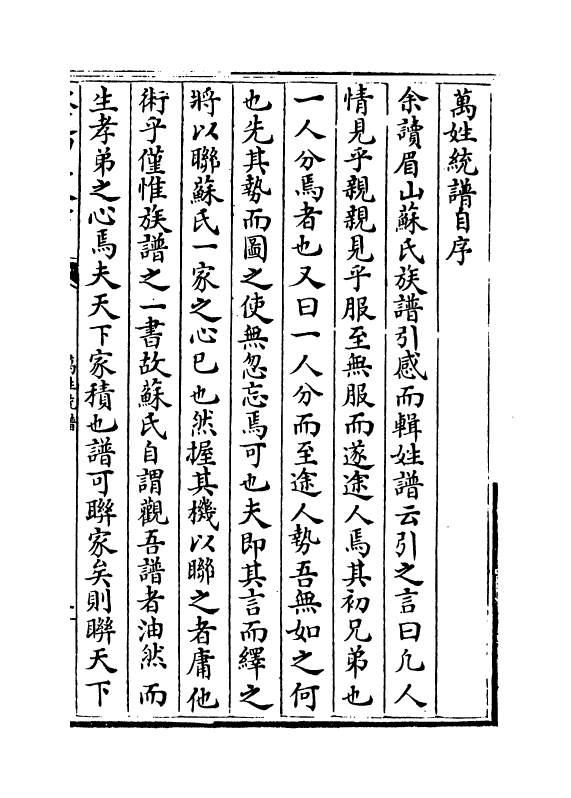 萬姓統譜自序
余讀眉山蘇氏族譜引感而輯姓譜云引之言曰凡人
情見乎親親見乎服至無服而遂途人焉其初兄弟也
一人分焉者也又曰一人分而至途人勢吾無如之何
也先其勢而圖之使無忽忘焉可也夫即其言而繹之
將以聯蘇氏一家之心已也然握其機以聯之者庸他
術乎僅惟族譜之一書故蘇氏自謂觀吾譜者油然而
生孝弟之心焉夫天下家積也譜可聯家矣則聯天下
萬姓統譜